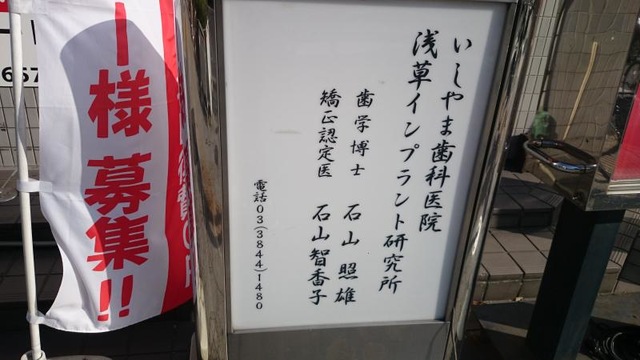 いしやま歯科医院
浅草インプラント研究所
歯学博士 石山 照雄
矯正認定医 石山智香子
電話03(3844)1480
ー様 募集!!
667